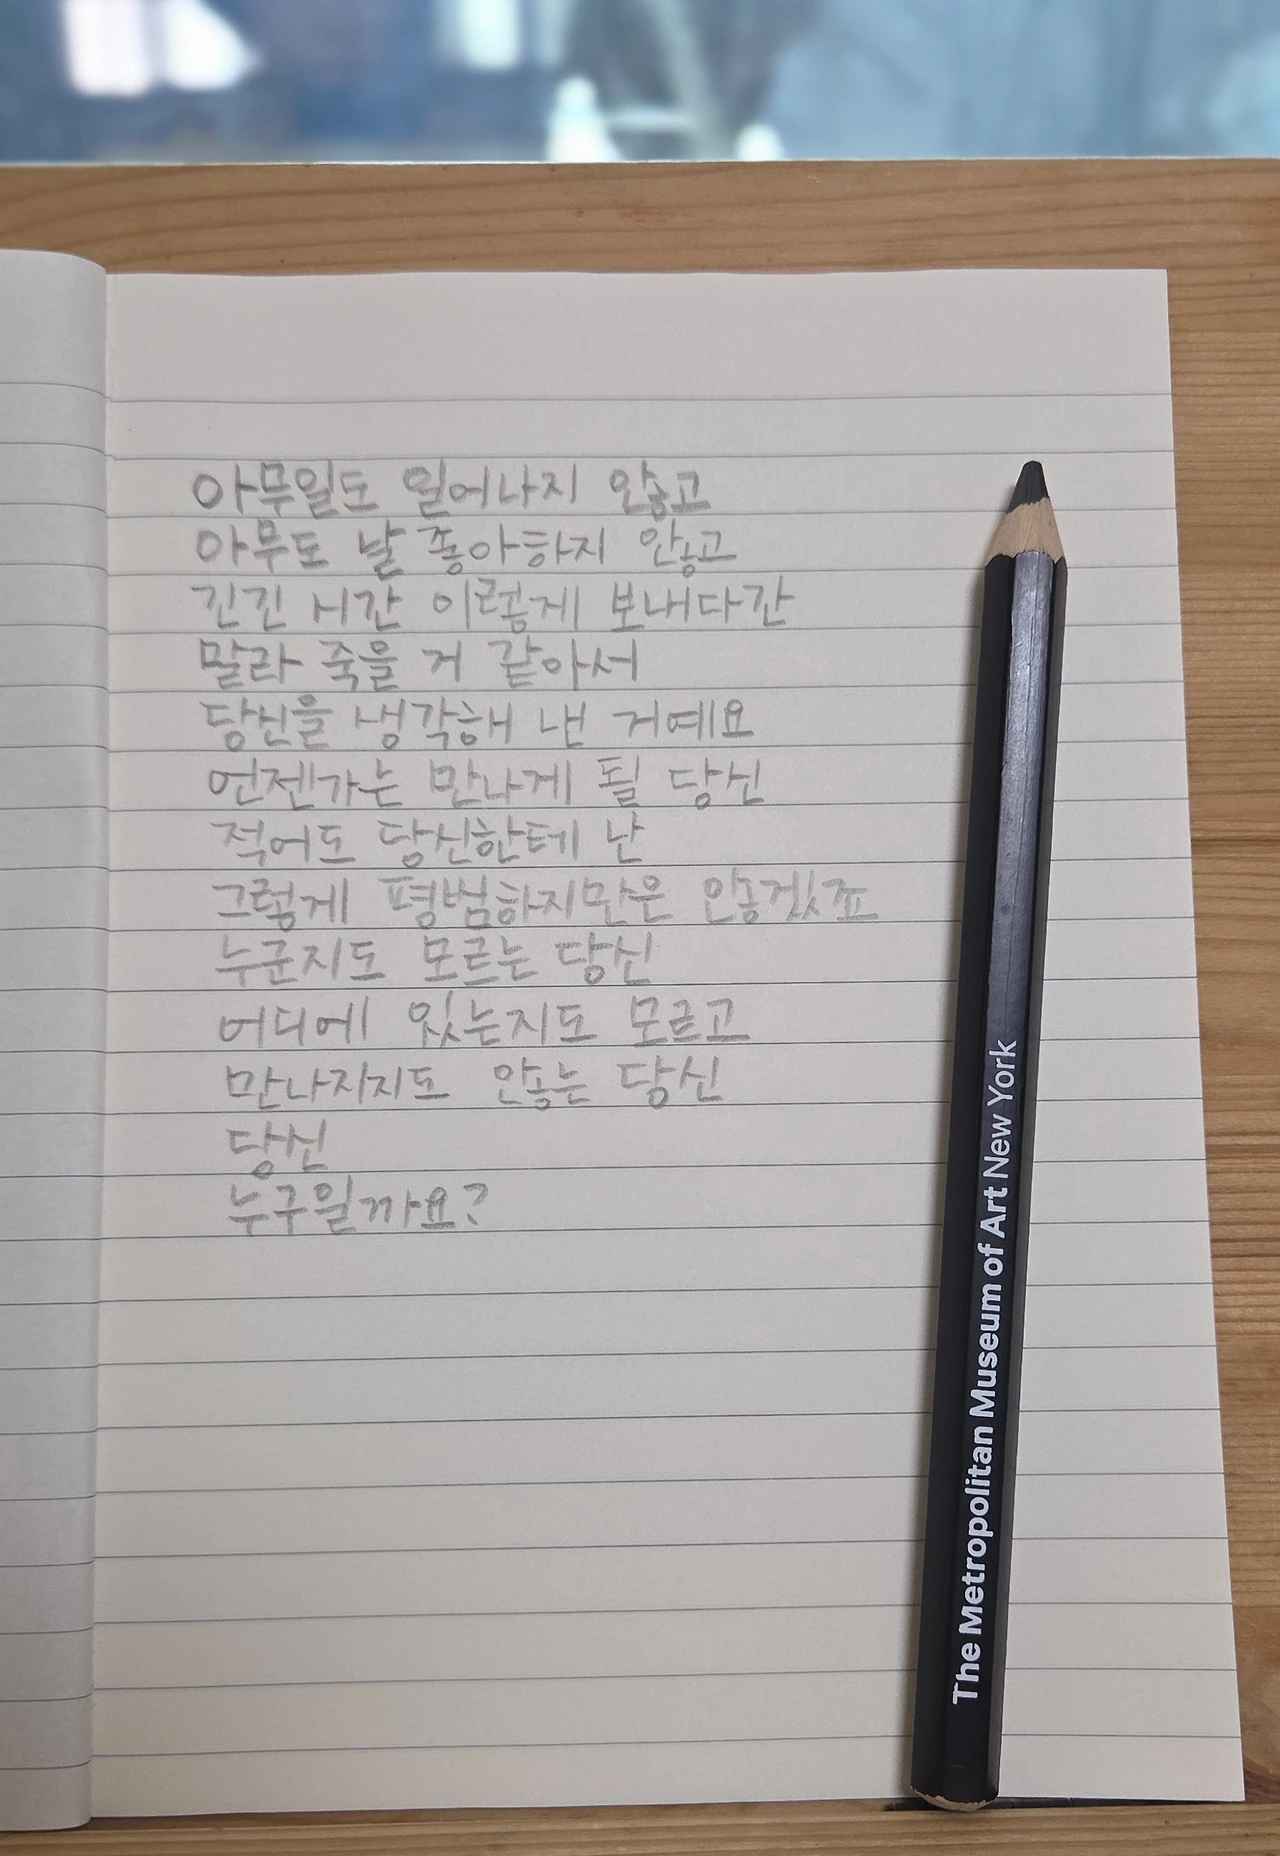 아무일도 일어나지 않고
아무도 날 좋아하지 않고
긴긴 시간 이렇게 보내다간
말라 죽을 거 같아서
당신을 생각해 낸 거예요
언젠가는 만나게 될 당신
적어도 당신한테 난
그렇게 평범하지만은 않겠죠
누군지도 모르는 당신
어디에 있는지도 모르고
만나지지도 않는 당신
당신
누구일까요?
The Metropolitan Museum of Art New York